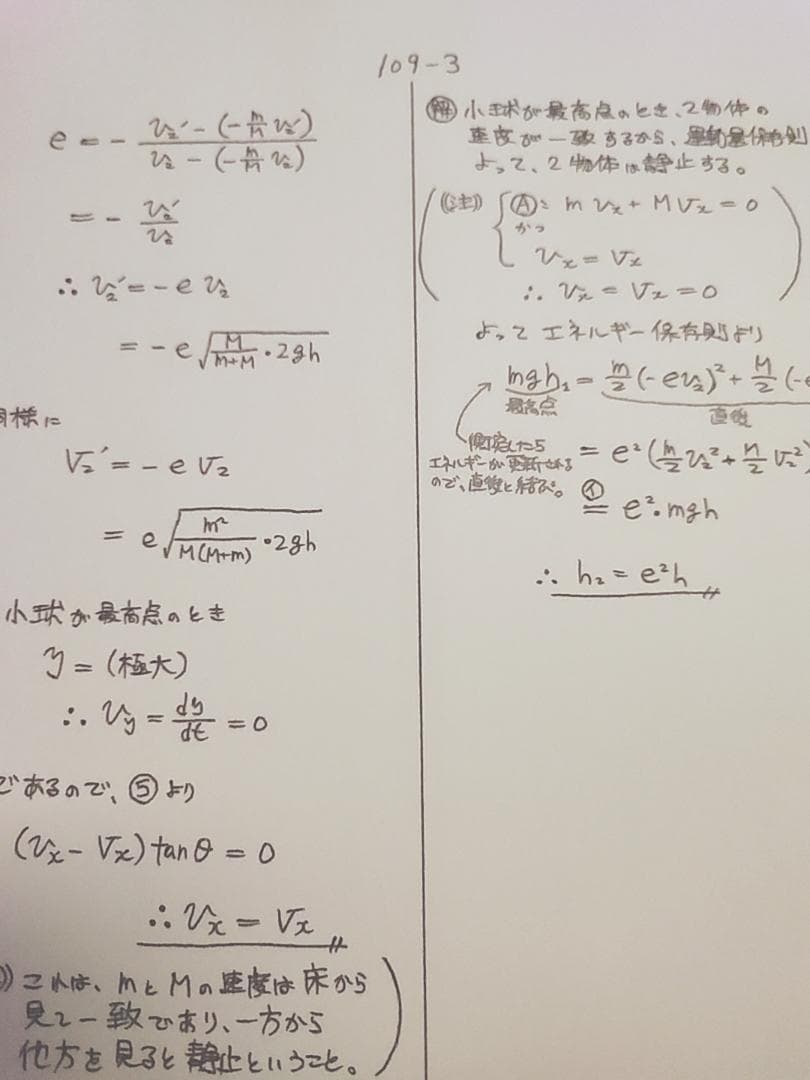 109-3
e = - \frac{v_2' - (-\frac{m}{M} v_2')}{v_2 - (-\frac{m}{M} v_2)}
= - \frac{v_2'}{v_2}
∴ v_2' = -e v_2
= -e √{\frac{M}{m+M}・2gh}
同様に
V_2' = -e V_2
= e √{\frac{m²}{M(M+m)}・2gh}
小球が最高点のとき
y = (極大)
∴ v_y = \frac{dy}{dt} = 0
であるので、⑤より
(v_x - V_x) tanθ = 0
∴ v_x = V_x
これは、mとMの速度は床から
見て一致であり、一方から
他方を見ると静止ということ。
解 小球が最高点のとき、2物体の
速度が一致するから、運動量保存則
よって、2物体は静止する。
(注) Ⓐ: m v_x + M V_x = 0
かつ
v_x = V_x
∴ v_x = V_x = 0
よって エネルギー保存則より
mgh_2 = \frac{m}{2}(-e v_2)² + \frac{M}{2}(-e
最高点 直後
衝突したら
エネルギーが更新される
ので、直後と結ぶ。
= e² (\frac{m}{2} v_2² + \frac{M}{2} V_2²)
㋑
= e²・mgh
∴ h_2 = e²h